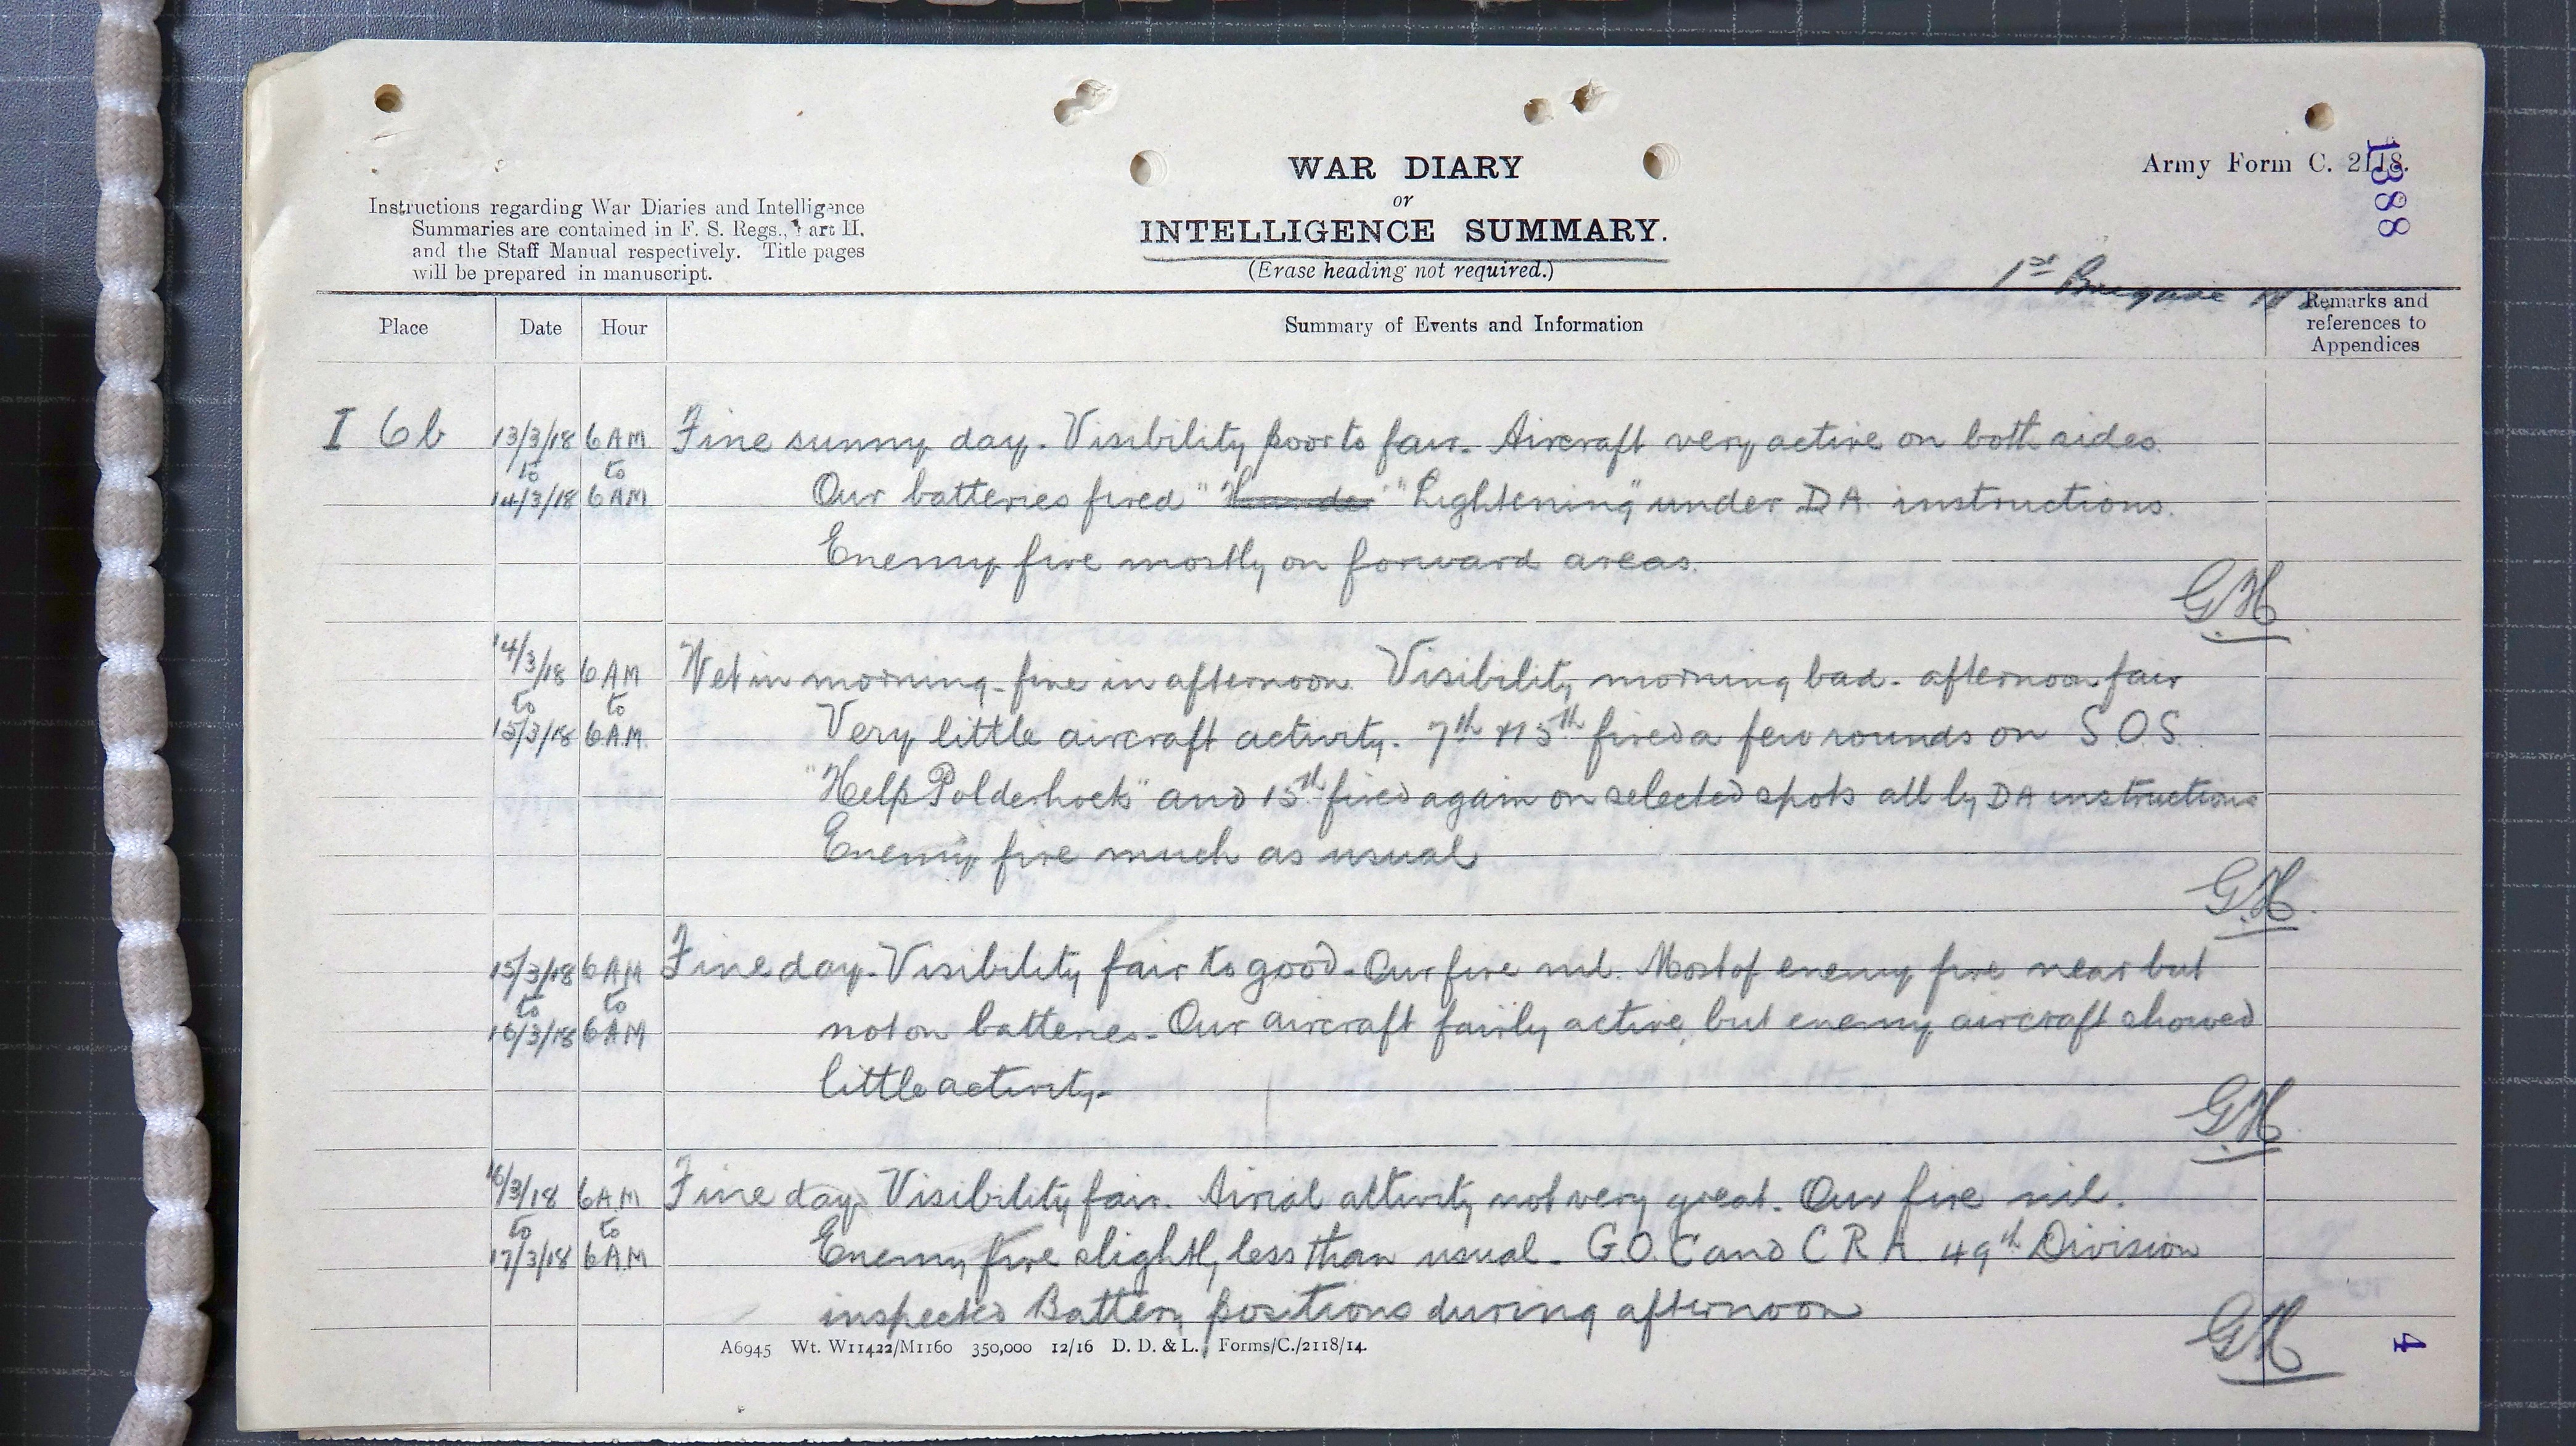 Army Form C. 2118.
1388
WAR DIARY
or
INTELLIGENCE SUMMARY.
(Erase heading not required.)
Instructions regarding War Diaries and Intelligence
Summaries are contained in F. S. Regs., Part II.
and the Staff Manual respectively. Title pages
will be prepared in manuscript.
1st Brigade
Place Date Hour Summary of Events and Information Remarks and references to Appendices
I 6 b 13/3/18 6 AM Fine sunny day. Visibility poor to fair. Aircraft very active on both sides.
to to
14/3/18 6 AM Our batteries fired " " "Lightening" under DA instructions.
Enemy fire mostly on forward areas.
GH
14/3/18 6 AM Wet in morning - fine in afternoon. Visibility morning bad - afternoon fair
to to
15/3/18 6 A.M. Very little aircraft activity. 7th & 15th fired a few rounds on S.O.S.
"Help Polderhoek" and 15th fired again on selected spots all by DA instructions
Enemy fire much as usual
GH
15/3/18 6 AM Fine day - Visibility fair to good - Our fire nil. Most of enemy fire near but
to to
16/3/18 6 AM not on batteries - Our aircraft fairly active, but enemy aircraft showed
little activity.
GH
16/3/18 6 AM Fine day. Visibility fair. Airial altivity not very great. Our fire nil.
to to
17/3/18 6 AM Enemy fire slightly less than usual - G.O.C and C R A 49th Division
inspected Battery positions during afternoon
GH
A6945 Wt. W11422/M1160 350,000 12/16 D. D. & L. Forms/C./2118/14.
4